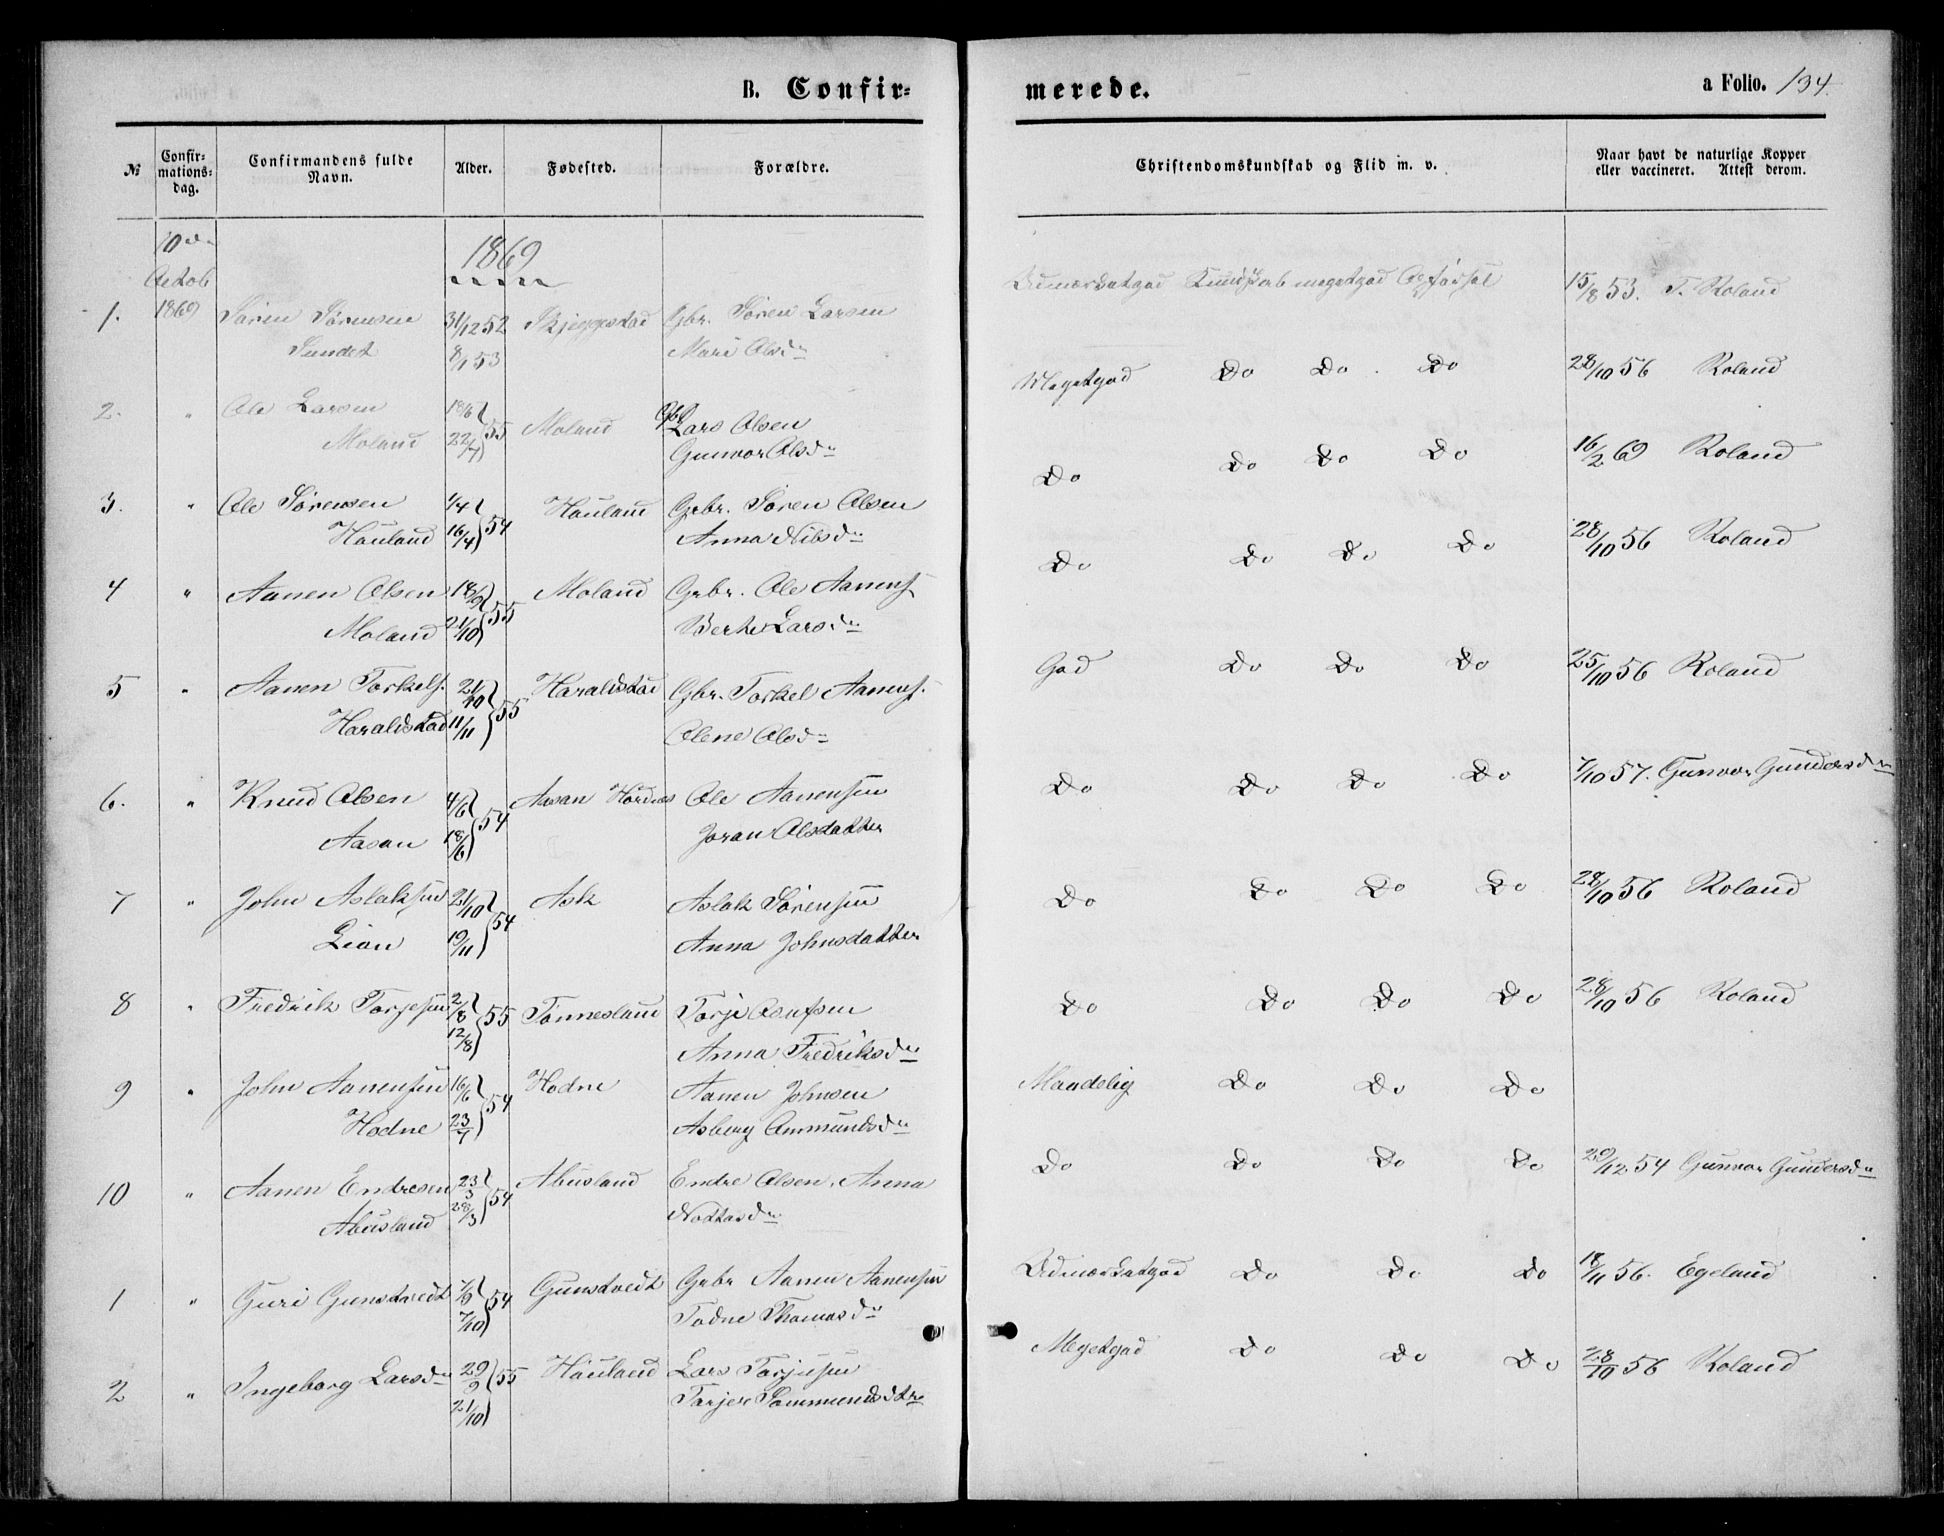 B. Confir=
merede.
a Folio. 134.
№
Confir=
mations=
dag.
Confirmandens fulde
Navn.
Alder.
Fødested.
Forældre.
Christendomskundskab og Flid m. v.
Naar havt de naturlige Kopper
eller vaccineret. Attest derom.
10de
Octob
1869
1869
1. Søren Sørensen 31/12 52 Skjeggestad Gbr. Søren Larsen
Sundet 8/1 53 Mari Olsdr
Udmærketgod Kundskab megetgod Opførsel 15/8 53. T. Roland
2. " Ole Larsen 18/6 Moland Gbr Lars Olsen
Moland 22/7 55 Gunvor Olsdr
Megetgod Do Do Do 28/10 56 Roland
3. " Ole Sørensen 1/4 Hauland Grbr. Søren Olsen
Hauland 16/4 54 Anna Nilsdr
Do Do Do Do 16/2 69 Roland
4 " Aanen Olsen 18/9 Moland Grbr. Ole Aanens.
Moland 21/10 55 Berte Larsdr
Do Do Do Do 28/10 56 Roland
5 " Aanen Torkels. 21/10 Haraldstad Gbr. Torkel Aanens.
Haraldstad 11/11 55 Olene Olsdr
God Do Do Do 25/10 56 Roland
6. " Knud Olsen 4/6 Aasan Hordnes Ole Aanensen
Aasan 18/6 54 Joran Olsdatter
Do Do Do Do 7/10 57. Gunvor Gundersdr
7 " John Aslaksen 21/10 Ask Aslak Sørensen
Lian 19/11 54 Anna Johnsdatter
Do Do Do Do 28/10 56 Roland
8 " Fredrik Torjesen 2/8 Tønnesland Torje
12/8 55 Anna Fredriksdr
Do Do Do Do 28/10 56 Roland
9 " John Aanensen 16/6 Hodne Aanen Johnsen
Hodne 23/7 54 Asberg Ommundsdr
Maadelig Do Do Do
10 " Aanen Endresen 23/3 Abusland Endre Olsen, Anna
Abusland 28/3 54
Do Do Do Do 29/12 54 Gunvor Gundersdr
1 " Guri Gunstvedt 1/9 Gunstvedt Grbr Aanen Aanensen
7/10 54 Todne Thomasdr
Udmærketgod Do Do Do 18/11 56. Egeland
2 " Ingeborg Larsdr 29/9 55 Hauland Lars Torjusen
21/10 Torjer Sommundsdtr
Megetgod Do Do Do 28/10 56 Roland